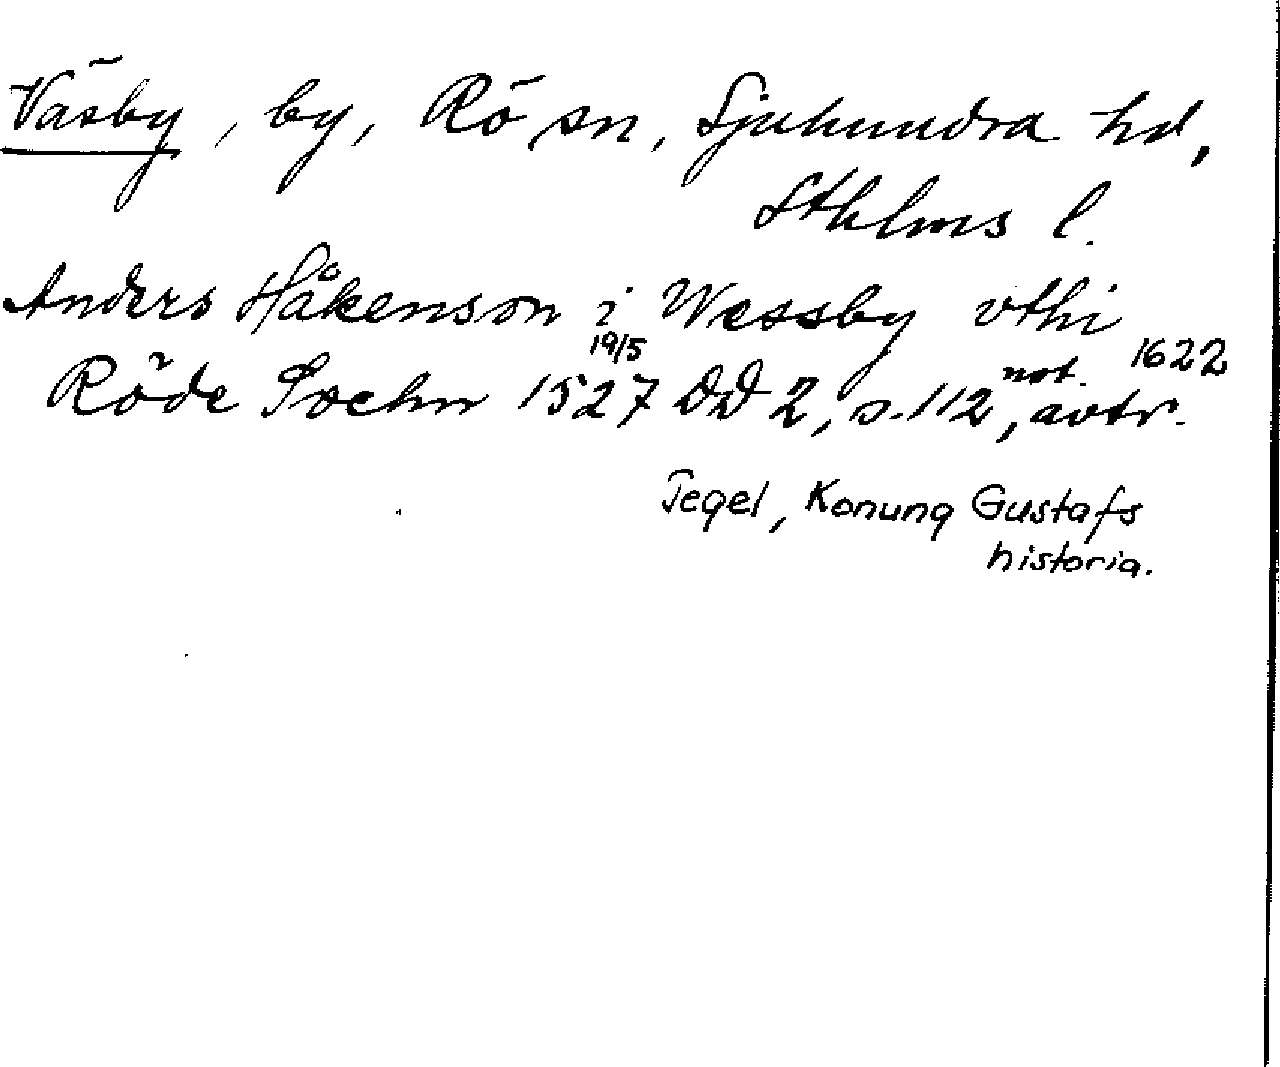 Väsby, by, Rö sn, Sjuhundra hd,
Sthlms l.
Anders Håkenson i Wessby vthi
Röde Sochn 19/5 1527 DD 2, s. 112 not., avtr. 1622
Tegel, Konung Gustafs
historia.